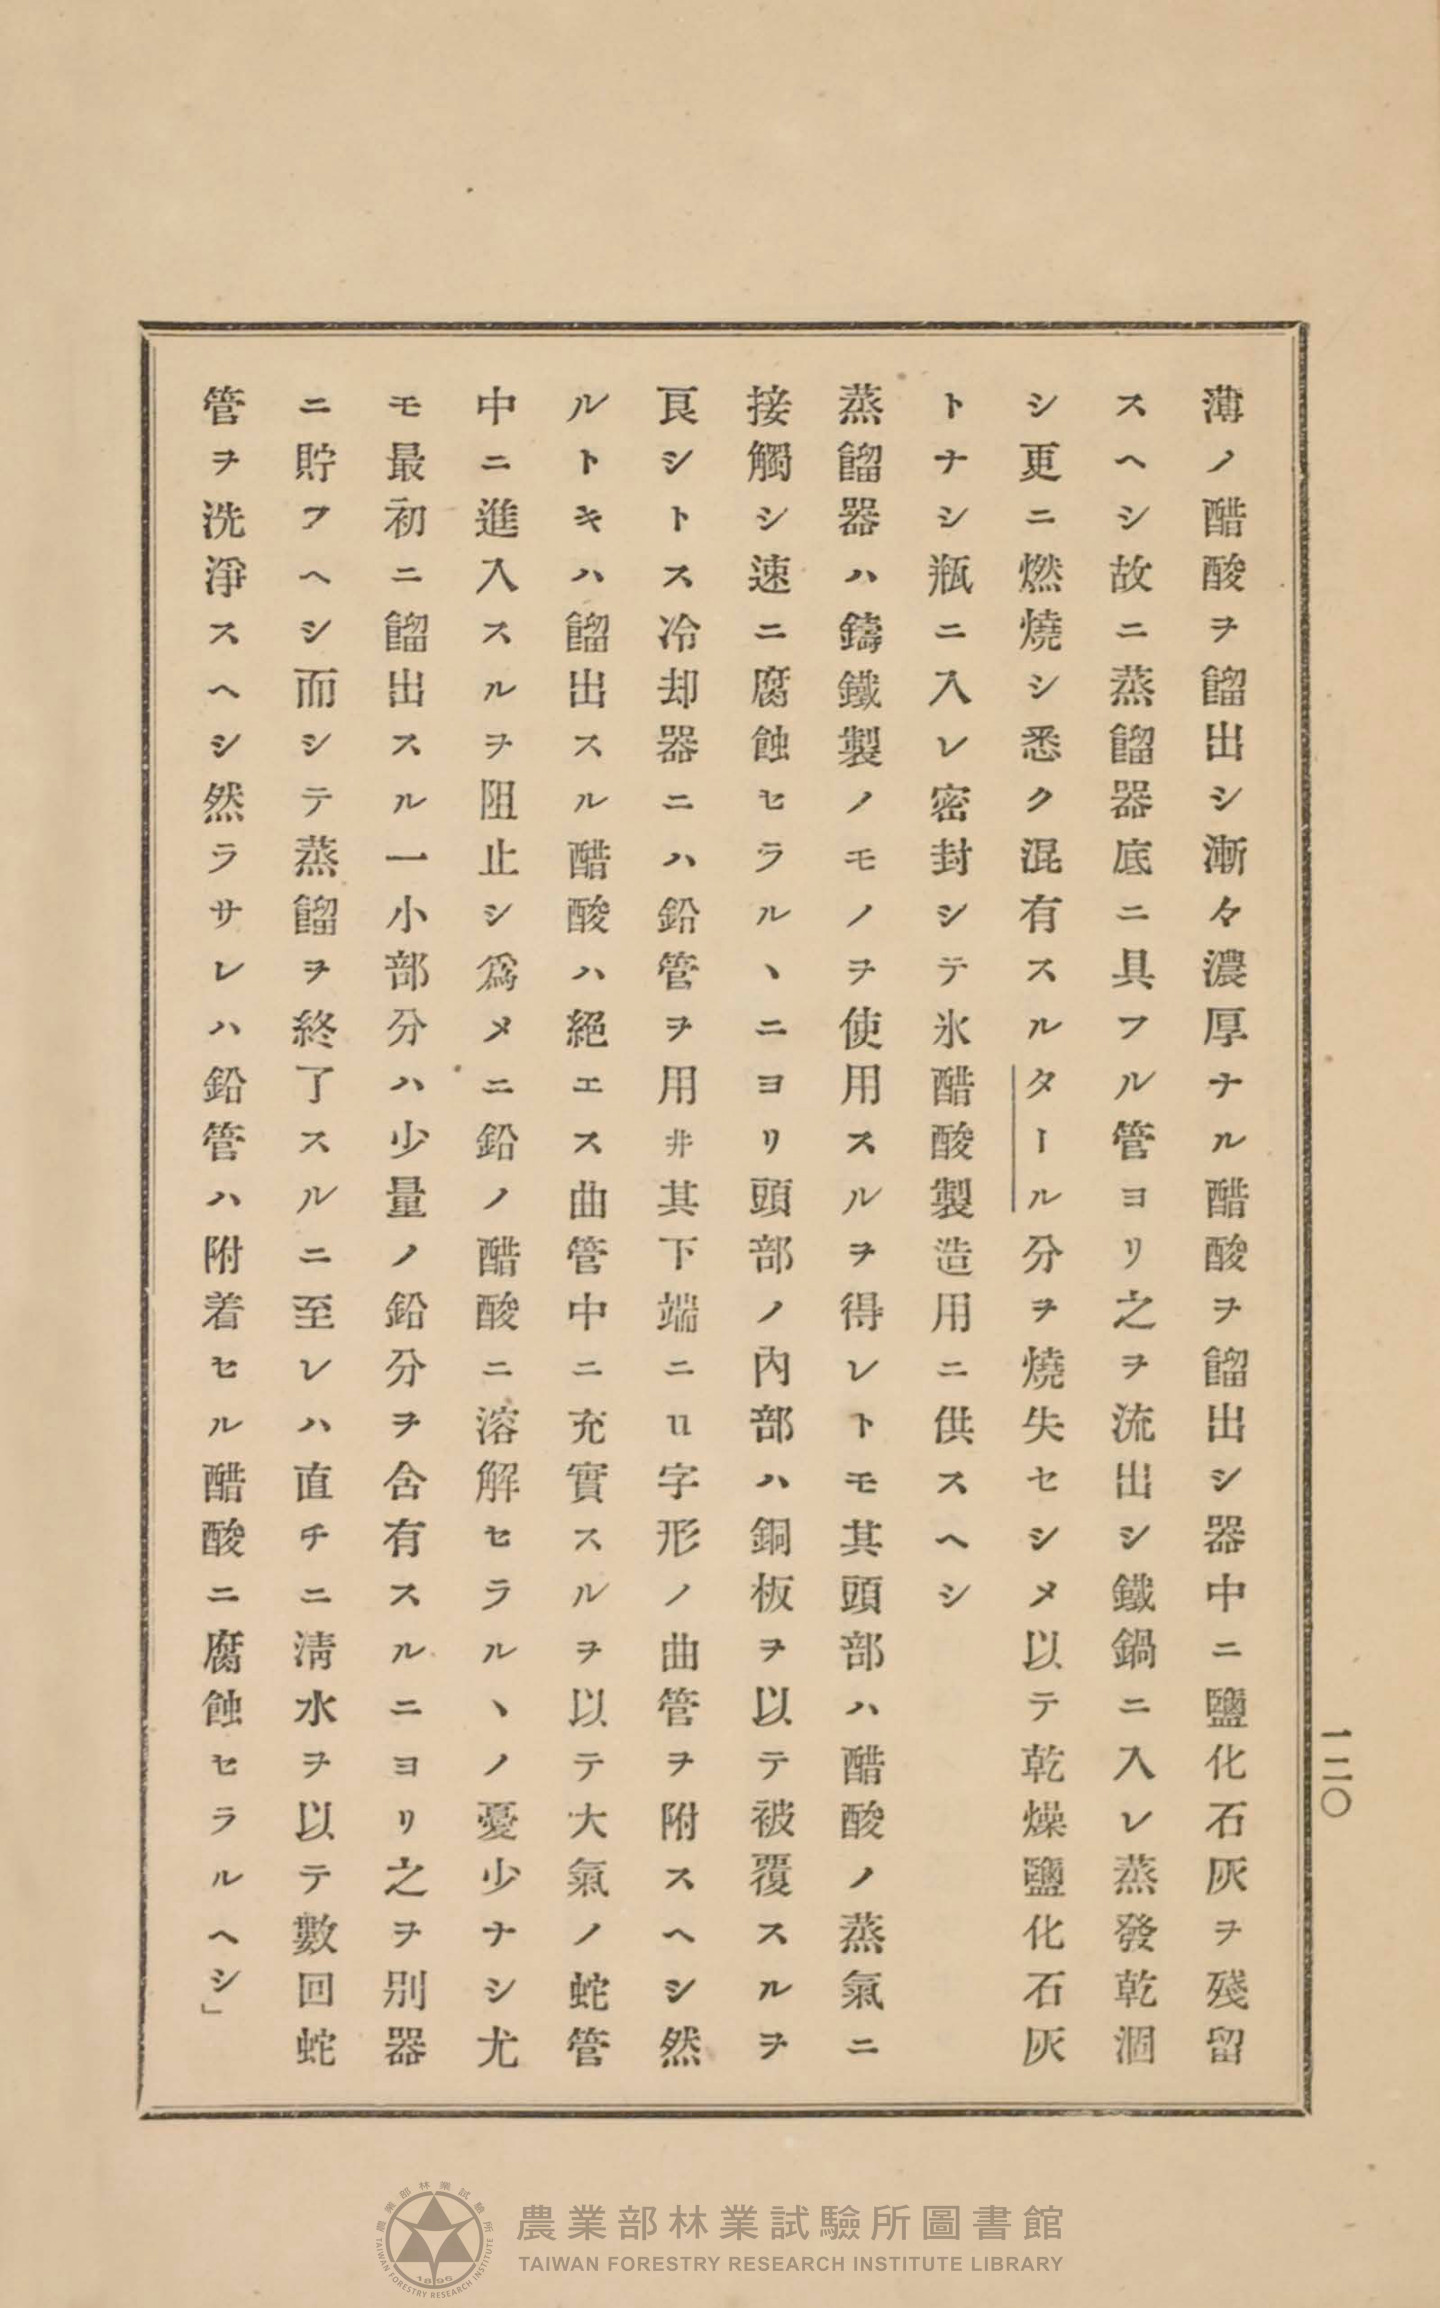 薄ノ醋酸ヲ餾出シ漸々濃厚ナル醋酸ヲ餾出シ器中ニ鹽化石灰ヲ殘留
スヘシ故ニ蒸餾器底ニ具フル管ヨリ之ヲ流出シ鐵鍋ニ入レ蒸發乾涸
シ更ニ燃燒シ悉ク混有スルタール分ヲ燒失セシメ以テ乾燥鹽化石灰
トナシ瓶ニ入レ密封シテ氷醋酸製造用ニ供スヘシ
蒸餾器ハ鑄鐵製ノモノヲ使用スルヲ得レトモ其頭部ハ醋酸ノ蒸氣ニ
接觸シ速ニ腐蝕セラルヽニヨリ頭部ノ內部ハ銅板ヲ以テ被覆スルヲ
良シトス冷却器ニハ鉛管ヲ用井其下端ニu字形ノ曲管ヲ附スヘシ然
ルトキハ餾出スル醋酸ハ絕エス曲管中ニ充實スルヲ以テ大氣ノ蛇管
中ニ進入スルヲ阻止シ爲メニ鉛ノ醋酸ニ溶解セラルヽノ憂少ナシ尤
モ最初ニ餾出スル一小部分ハ少量ノ鉛分ヲ含有スルニヨリ之ヲ別器
ニ貯フヘシ而シテ蒸餾ヲ終了スルニ至レハ直チニ淸水ヲ以テ數回蛇
管ヲ洗淨スヘシ然ラサレハ鉛管ハ附着セル醋酸ニ腐蝕セラルヘシ」
一二〇
農業部林業試驗所圖書館
TAIWAN FORESTRY RESEARCH INSTITUTE LIBRARY
農業部林業試驗所
TAIWAN FORESTRY RESEARCH INSTITUTE
1896